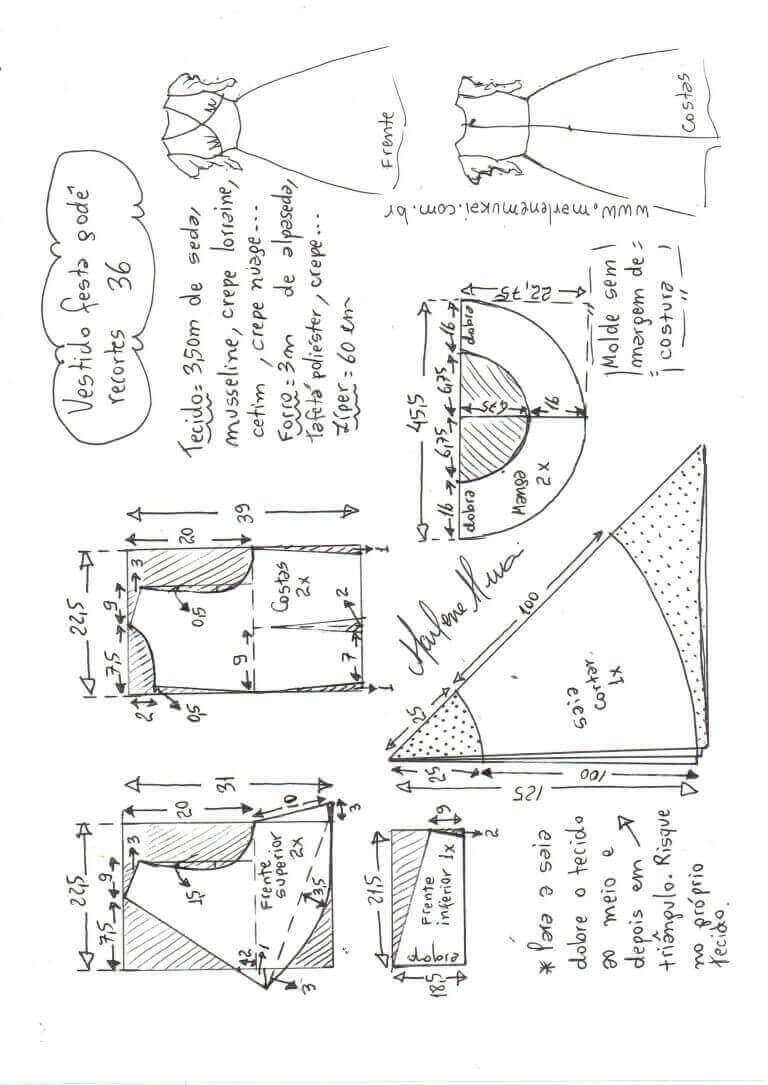 Vestido festa godê
recortes 36
Tecido = 3,50m de seda,
musseline, crepe lorraine,
cetim, crepe nuage...
Forro = 3m de alpaseda,
tafetá poliéster, crepe...
Zíper = 60 cm
Frente
Costas
www.marlenemukai.com.br
22,5
7,5
9
3
20
31
10
3
1,5
Frente
superior
2x
3,5
2
1
3
22,5
7,5
9
3
20
39
2
0,5
0,5
Costas
2x
9
7
2
1
1
45,5
16
6,75
6,75
16
dobra
dobra
6,75
16
22,75
Manga
2x
Molde sem
margem de
costura
21,5
18,5
9
2
Frente
inferior 1x
dobra
25
100
25
100
125
saia
cortar
1x
* Para a saia
dobre o tecido
ao meio e
depois em
triângulo. Risque
no próprio
tecido.